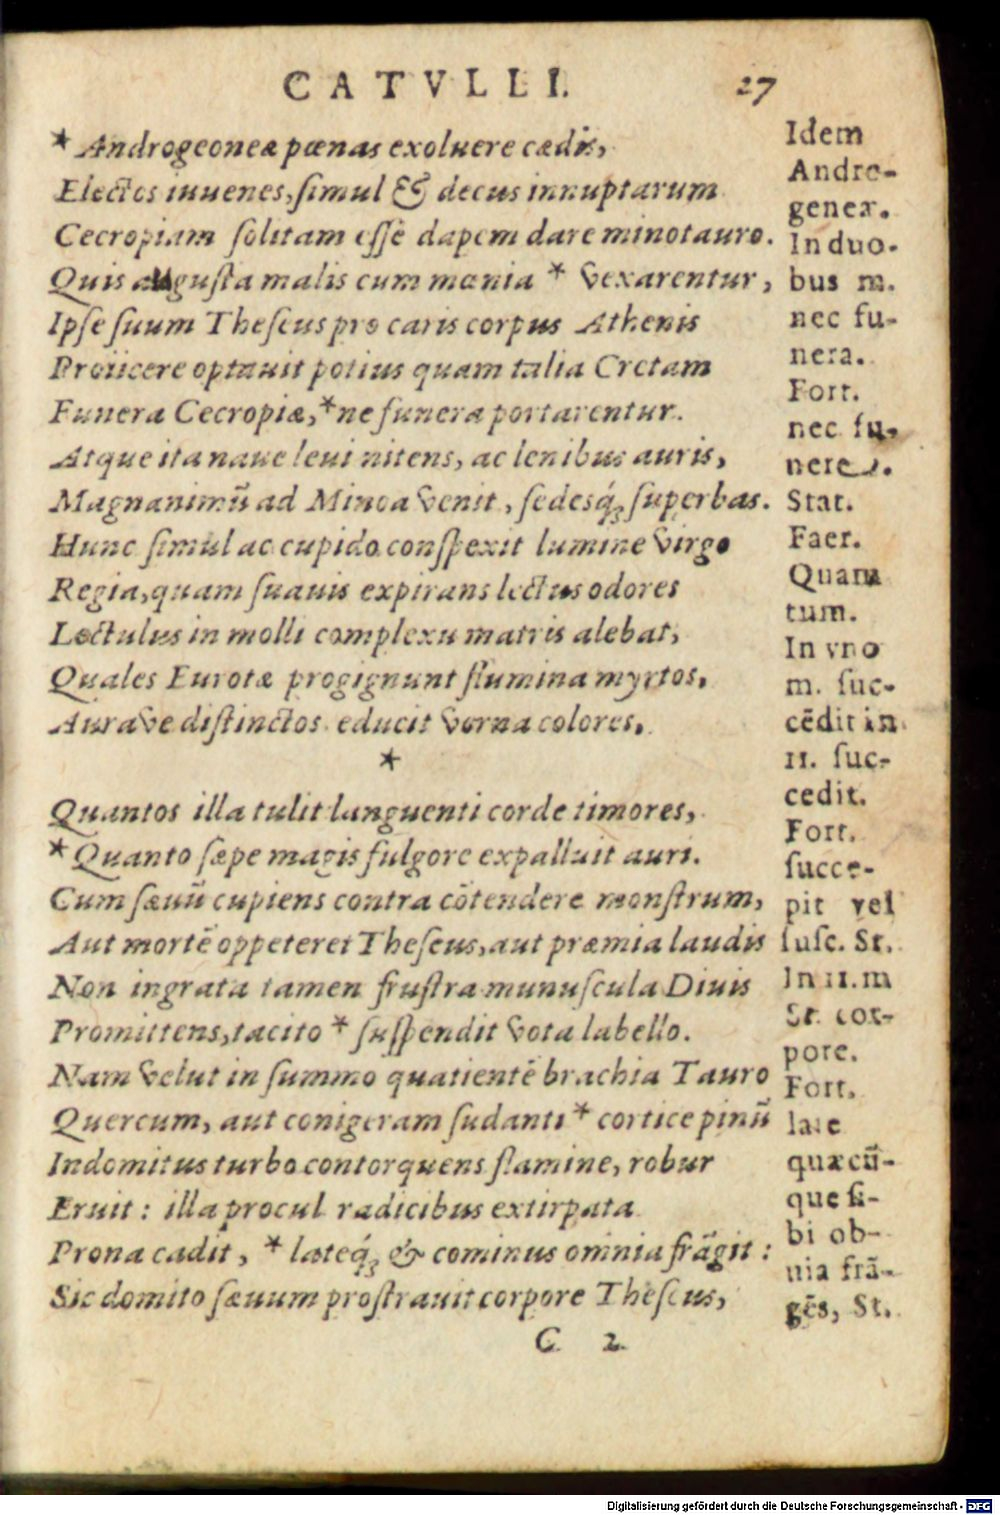 CATVLLI. 27
* Androgeoneæ pœnas exoluere cædis,
Electos iuuenes, simul & decus innuptarum
Cecropiam solitam esse dapem dare minotauro.
Quis augusta malis cum mœnia * vexarentur,
Ipse suum Theseus pro caris corpus Athenis
Proiicere optauit potius quam talia Cretam
Funera Cecropiæ, * ne funera portarentur.
Atque ita naue leui nitens, ac lenibus auris,
Magnanimū ad Minoa venit, sedesq́; superbas.
Hunc simul ac cupido conspexit lumine virgo
Regia, quam suauis expirans lectus odores
Lectulus in molli complexu matris alebat,
Quales Eurotæ progignunt flumina myrtos,
Aurave distinctos educit verna colores,
*
Quantos illa tulit languenti corde timores,
* Quanto sæpe magis fulgore expalluit auri.
Cum sæuū cupiens contra cōtendere monstrum,
Aut mortē oppeteret Theseus, aut præmia laudis
Non ingrata tamen frustra munuscula Diuis
Promittens, tacito * suspendit vota labello.
Nam velut in summo quatientē brachia Tauro
Quercum, aut conigeram sudanti * cortice pinū
Indomitus turbo contorquens flamine, robur
Eruit: illa procul radicibus extirpata
Prona cadit, * lateq́; & cominus omnia frāgit:
Sic domito sæuum prostrauit corpore Theseus,
C 2
Idem
Andro-
geneæ.
In duo-
bus m.
nec fu-
nera.
Fort.
nec fu-
nere
Stat.
Faer.
Quam
tum.
In vno
m. suc-
cēdit in
11. suc-
cedit.
Fort.
succe-
pit vel
susc. St.
In 11. m
St. cor-
pore.
Fort.
late
quæcū-
que si-
bi ob-
uia frā-
gēs, St.
Digitalisierung gefördert durch die Deutsche Forschungsgemeinschaft - DFG